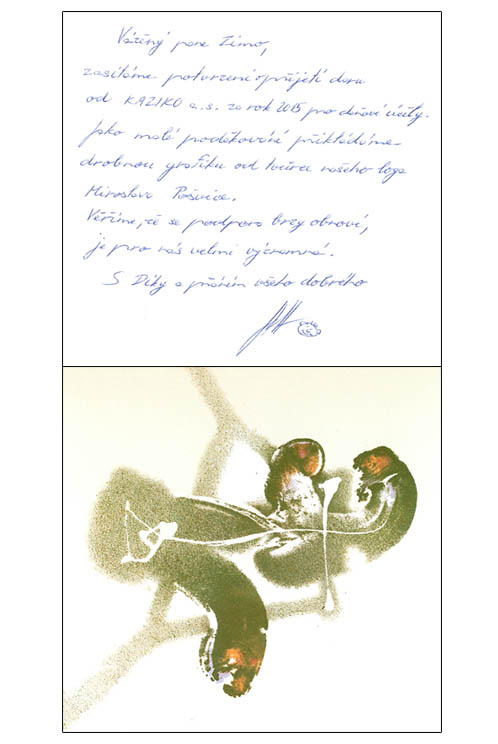 Vážený pane Zimo,
zasíláme potvrzení o přijetí daru
od KAZIKO a.s. za rok 2015 pro daňové účely.
Jako malé poděkování přikládáme
drobnou grafiku od tvůrce našeho loga
Miroslava Pošvice.
Věříme, že se podpora brzy obnoví,
je pro nás velmi významná.
S Díky a přáním všeho dobrého